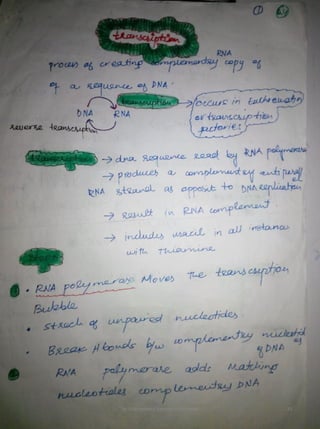 1
transcription
process of creating complementry copy of RNA
of a sequence of DNA.
transcription → occurs in Euchromatin
DNA RNA
or transcription
factories
reverse transcription
transcription → dna sequence read by RNA polymerase
→ produces a complementry anti parallel
RNA strand as opposit to DNA replication
→ result in RNA complement.
→ includes uracil in all instances
with thiamine
Steps
• RNA polymerase Moves the transcription
Bubble
• strech of unpaired nucleotides.
• Break H bonds b/w complementry nucleotid
of DNA
RNA polymerase adds Matching
nucleotides complementry DNA